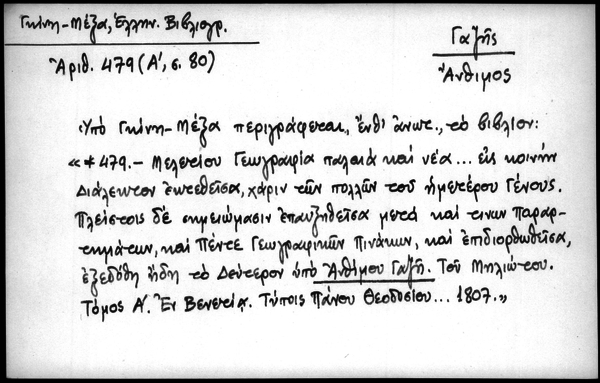 Γκίνη-Μέξα, Ἑλλην. Βιβλιογρ.
Ἀριθ. 479 (Α', σ. 80)
Γαζῆς
Ἄνθιμος
Ὑπὸ Γκίνη-Μέξα περιγράφεται, ἔνθ' ἄνωτ., τὸ βιβλίον:
«*479.- Μελετίου Γεωγραφία παλαιὰ καὶ νέα... εἰς κοινὴν
Διάλεκτον ἐκτεθεῖσα, χάριν τῶν πολλῶν τοῦ ἡμετέρου Γένους.
Πλείστοις δὲ σημειώμασιν ἐπαυξηθεῖσα μετὰ καὶ τινων Παραρ-
τημάτων, καὶ Πέντε Γεωγραφικῶν Πινάκων, καὶ ἐπιδιορθωθεῖσα,
ἐξεδόθη ἤδη τὸ Δεύτερον ὑπὸ Ἀνθίμου Γαζῆ. Τοῦ Μηλιώτου.
Τόμος Α'. Ἐν Βενετίᾳ. Τύποις Πάνου Θεοδοσίου... 1807.»